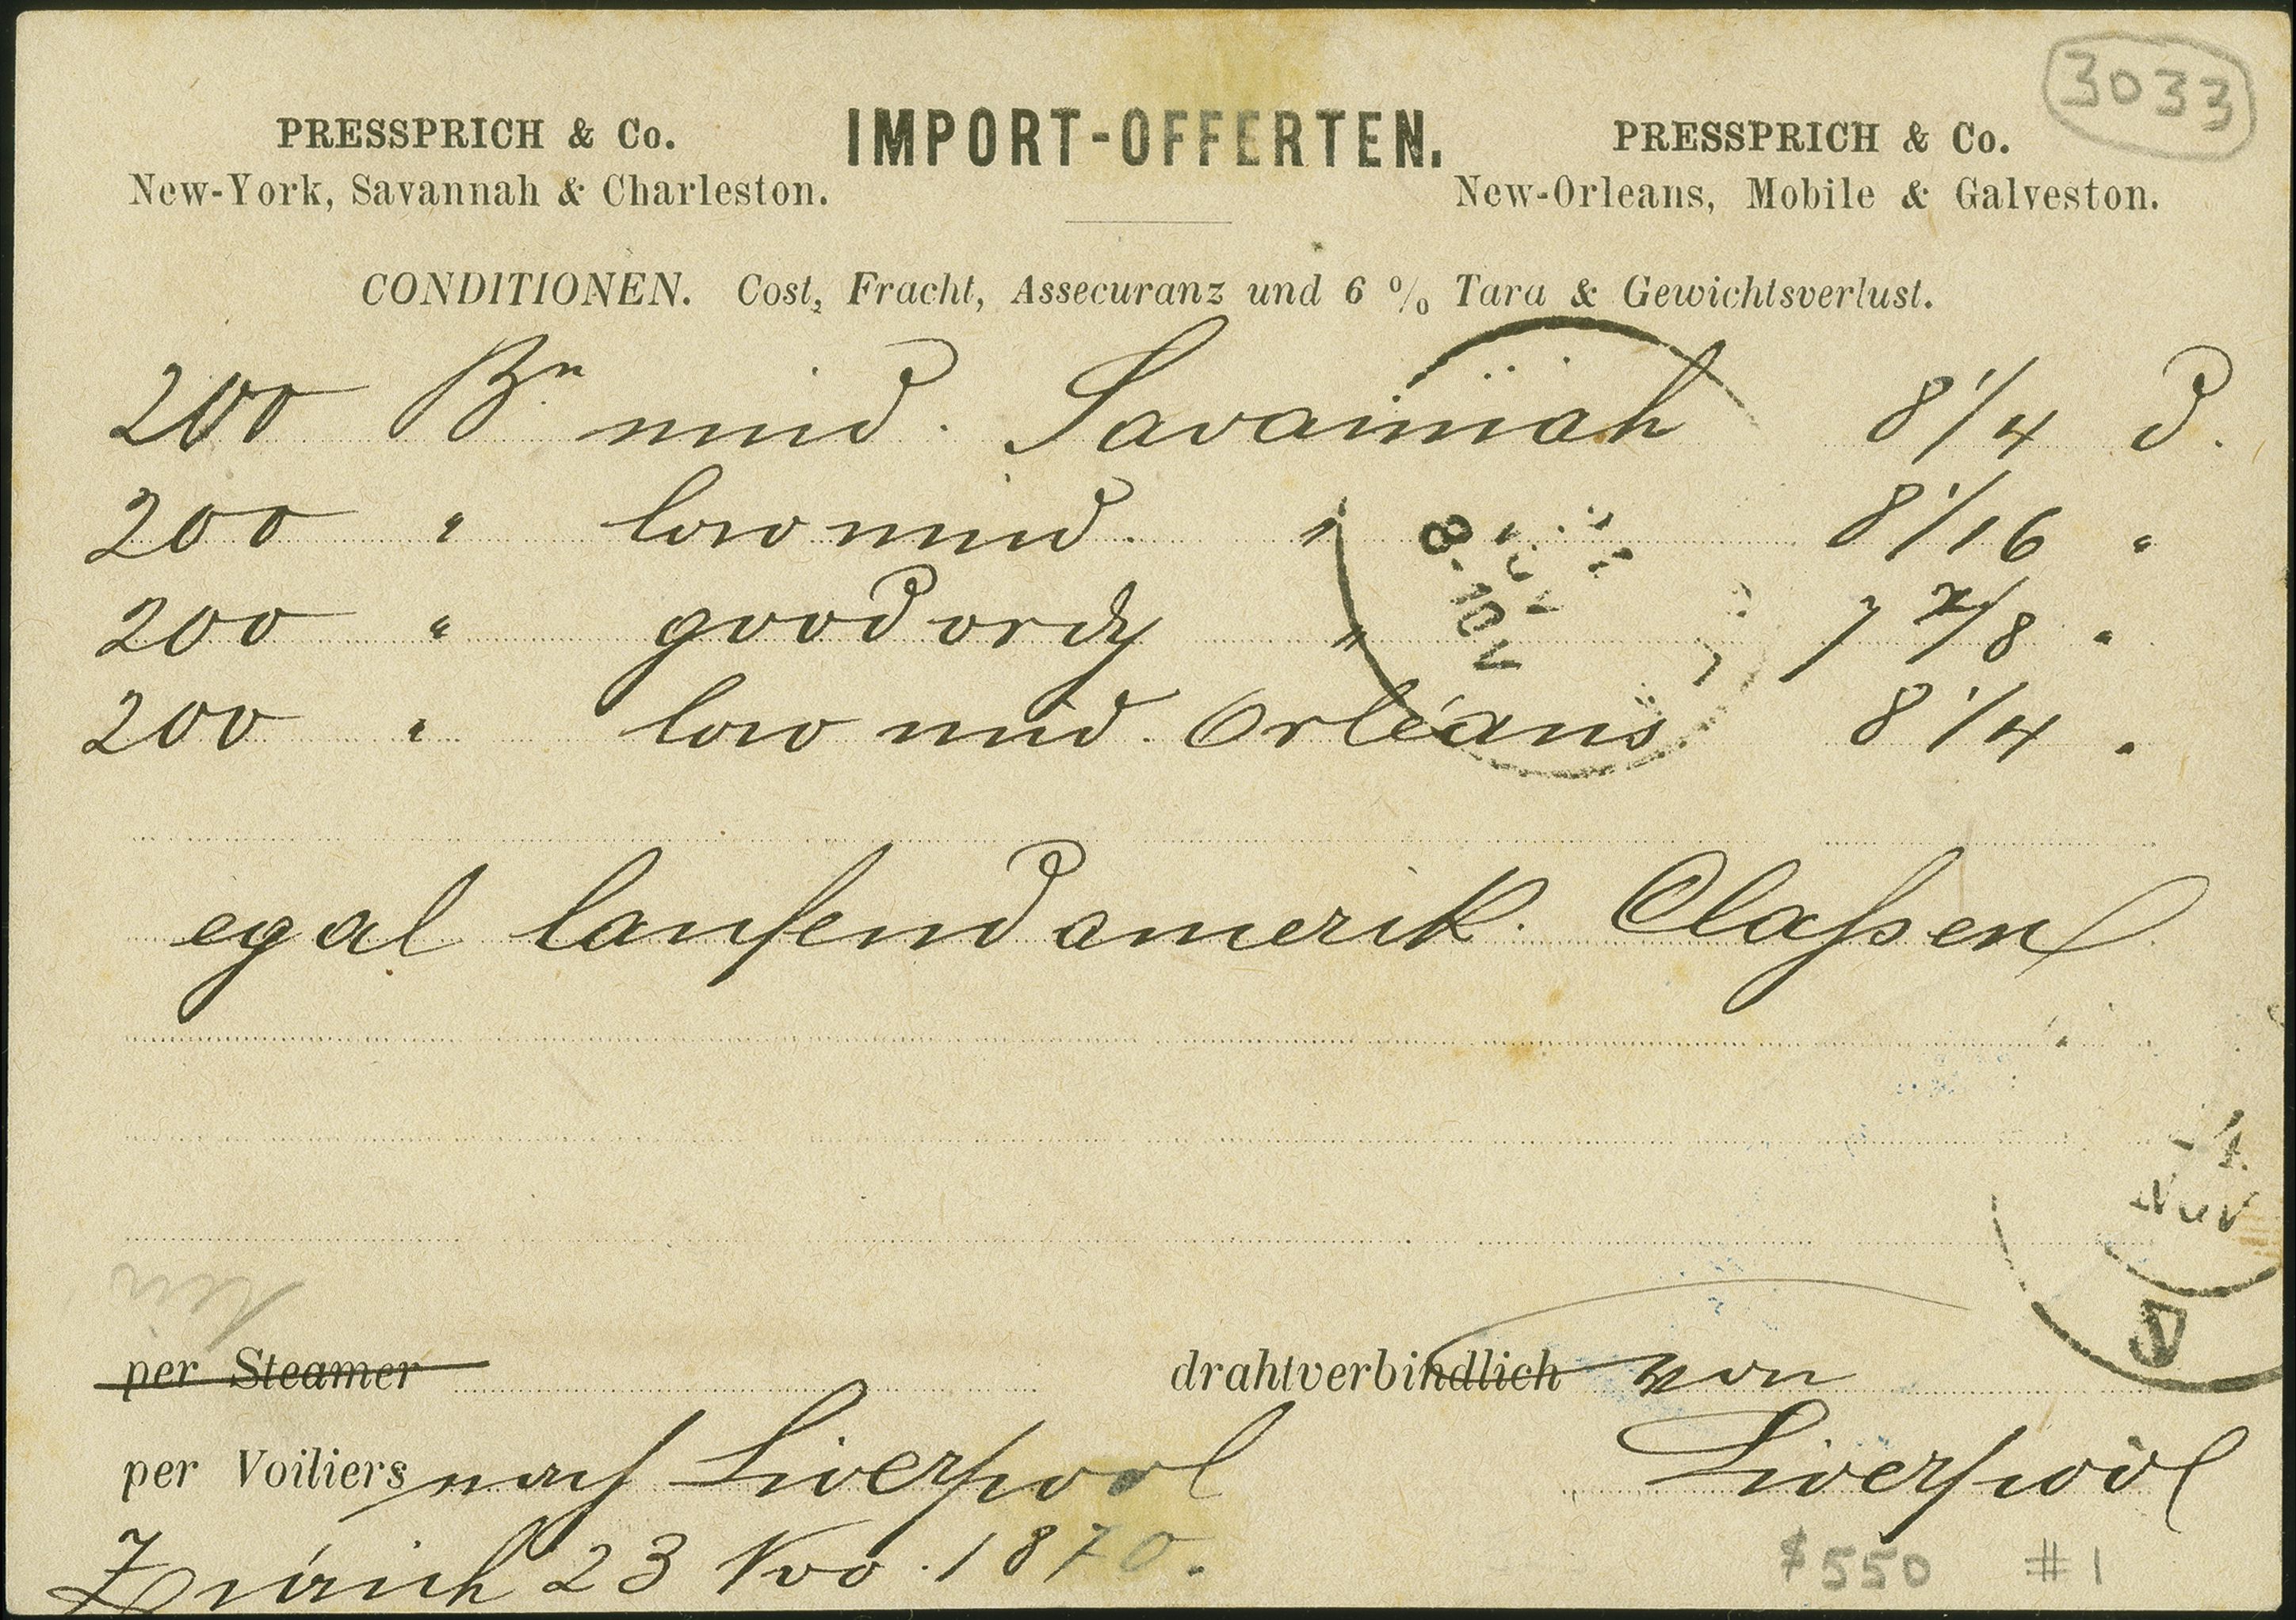 3033
PRESSPRICH & Co. IMPORT-OFFERTEN. PRESSPRICH & Co.
New-York, Savannah & Charleston. New-Orleans, Mobile & Galveston.
CONDITIONEN. Cost, Fracht, Assecuranz und 6 % Tara & Gewichtsverlust.
200 Bn mid. Savannah 8 1/4 d.
200 " low mid. " 8 1/16 "
200 " good ordy " 7 7/8 "
200 " low mid. Orleans 8 1/4 "
8-10 V
egal laufend amerik. Classen
NOV
per Steamer drahtverbindlich von
per Voiliers nach Liverpool Liverpool
Zürich 23 Nov. 1870.
$550 #1